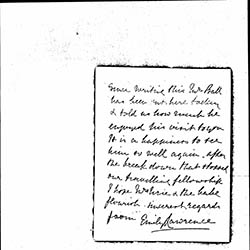 Since writing this Mr Ball
has been in here today
& told us how much he
enjoyed his visit to you
It is a happiness to see
him so well again, after
the break down that closed
our travelling fellowship
I hope Mrs and the babe
flourish. Sincerest regards
from Emily Lawrence